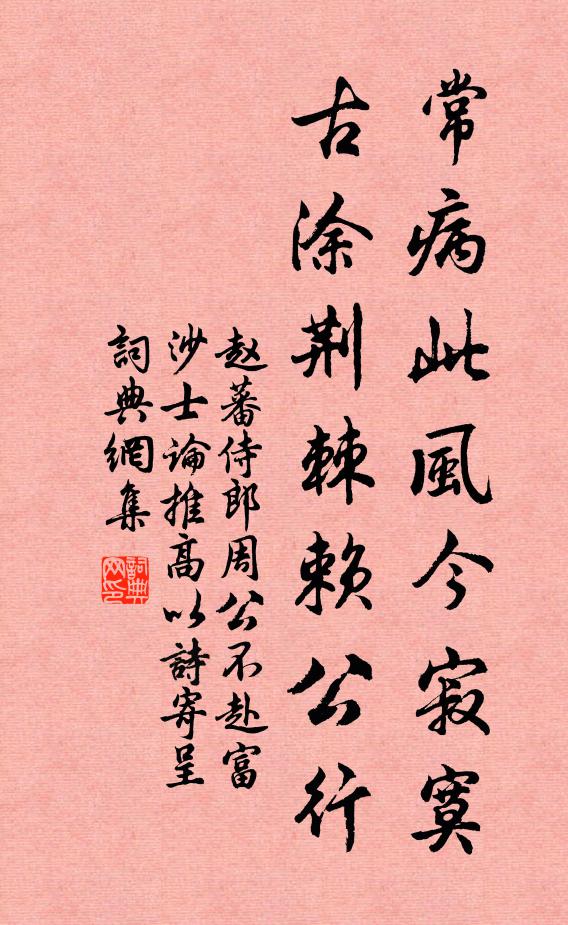 常病此風今寂寞
古涂荆棘赖公行
赵蕃侍郎周公不赴富
沙士论推高以詩寄呈
詞典網集
詞典网印